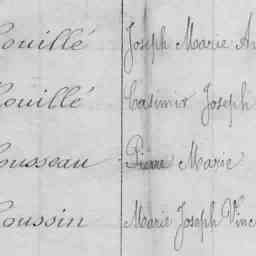 Rouillé Joseph Marie
Rouillé Casimir Joseph
Rousseau Pierre Marie
Roussin Marie Joseph Vinc